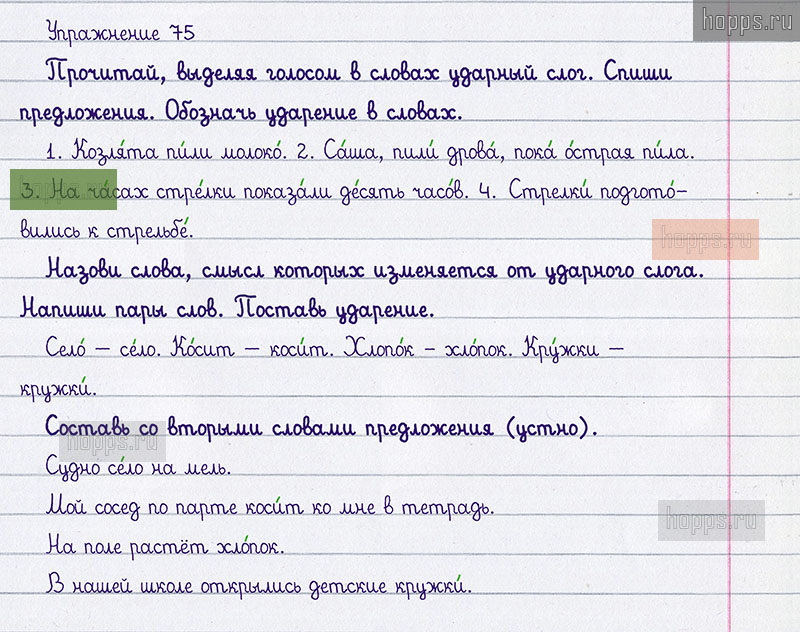 hopps.ru
Упражнение 75
Прочитай, выделяя голосом в словах ударный слог. Спиши
предложения. Обозначь ударение в словах.
1. Козля́та пи́ли молоко́. 2. Са́ша, пили́ дрова́, пока́ о́страя пи́ла.
3. На ча́сах стре́лки показа́ли де́сять часо́в. 4. Стрелки́ подгото́-
вились к стрельбе́.
hopps.ru
Назови слова, смысл которых изменяется от ударного слога.
Напиши пары слов. Поставь ударение.
Село́ – се́ло. Ко́сит – коси́т. Хлопо́к – хло́пок. Кру́жки –
кружки́.
Составь со вторыми словами предложения (устно).
hopps.ru
Судно се́ло на мель.
Мой сосед по парте коси́т ко мне в тетрадь.
hopps.ru
На поле растёт хло́пок.
В нашей школе открылись детские кружки́.